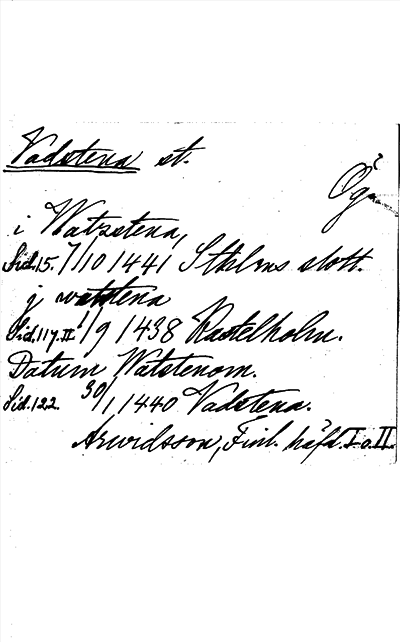 Vadstena st.
Ög.
i Watzstena,
Sid.15. 7/10 1441 Sthlms slott.
j watstena
Sid.117.II. 1/9 1438 Kastelholm.
Datum Watstenom.
Sid.122. 30/1 1440 Vadstena.
Arwidsson, Finl. häfd. I o. II.